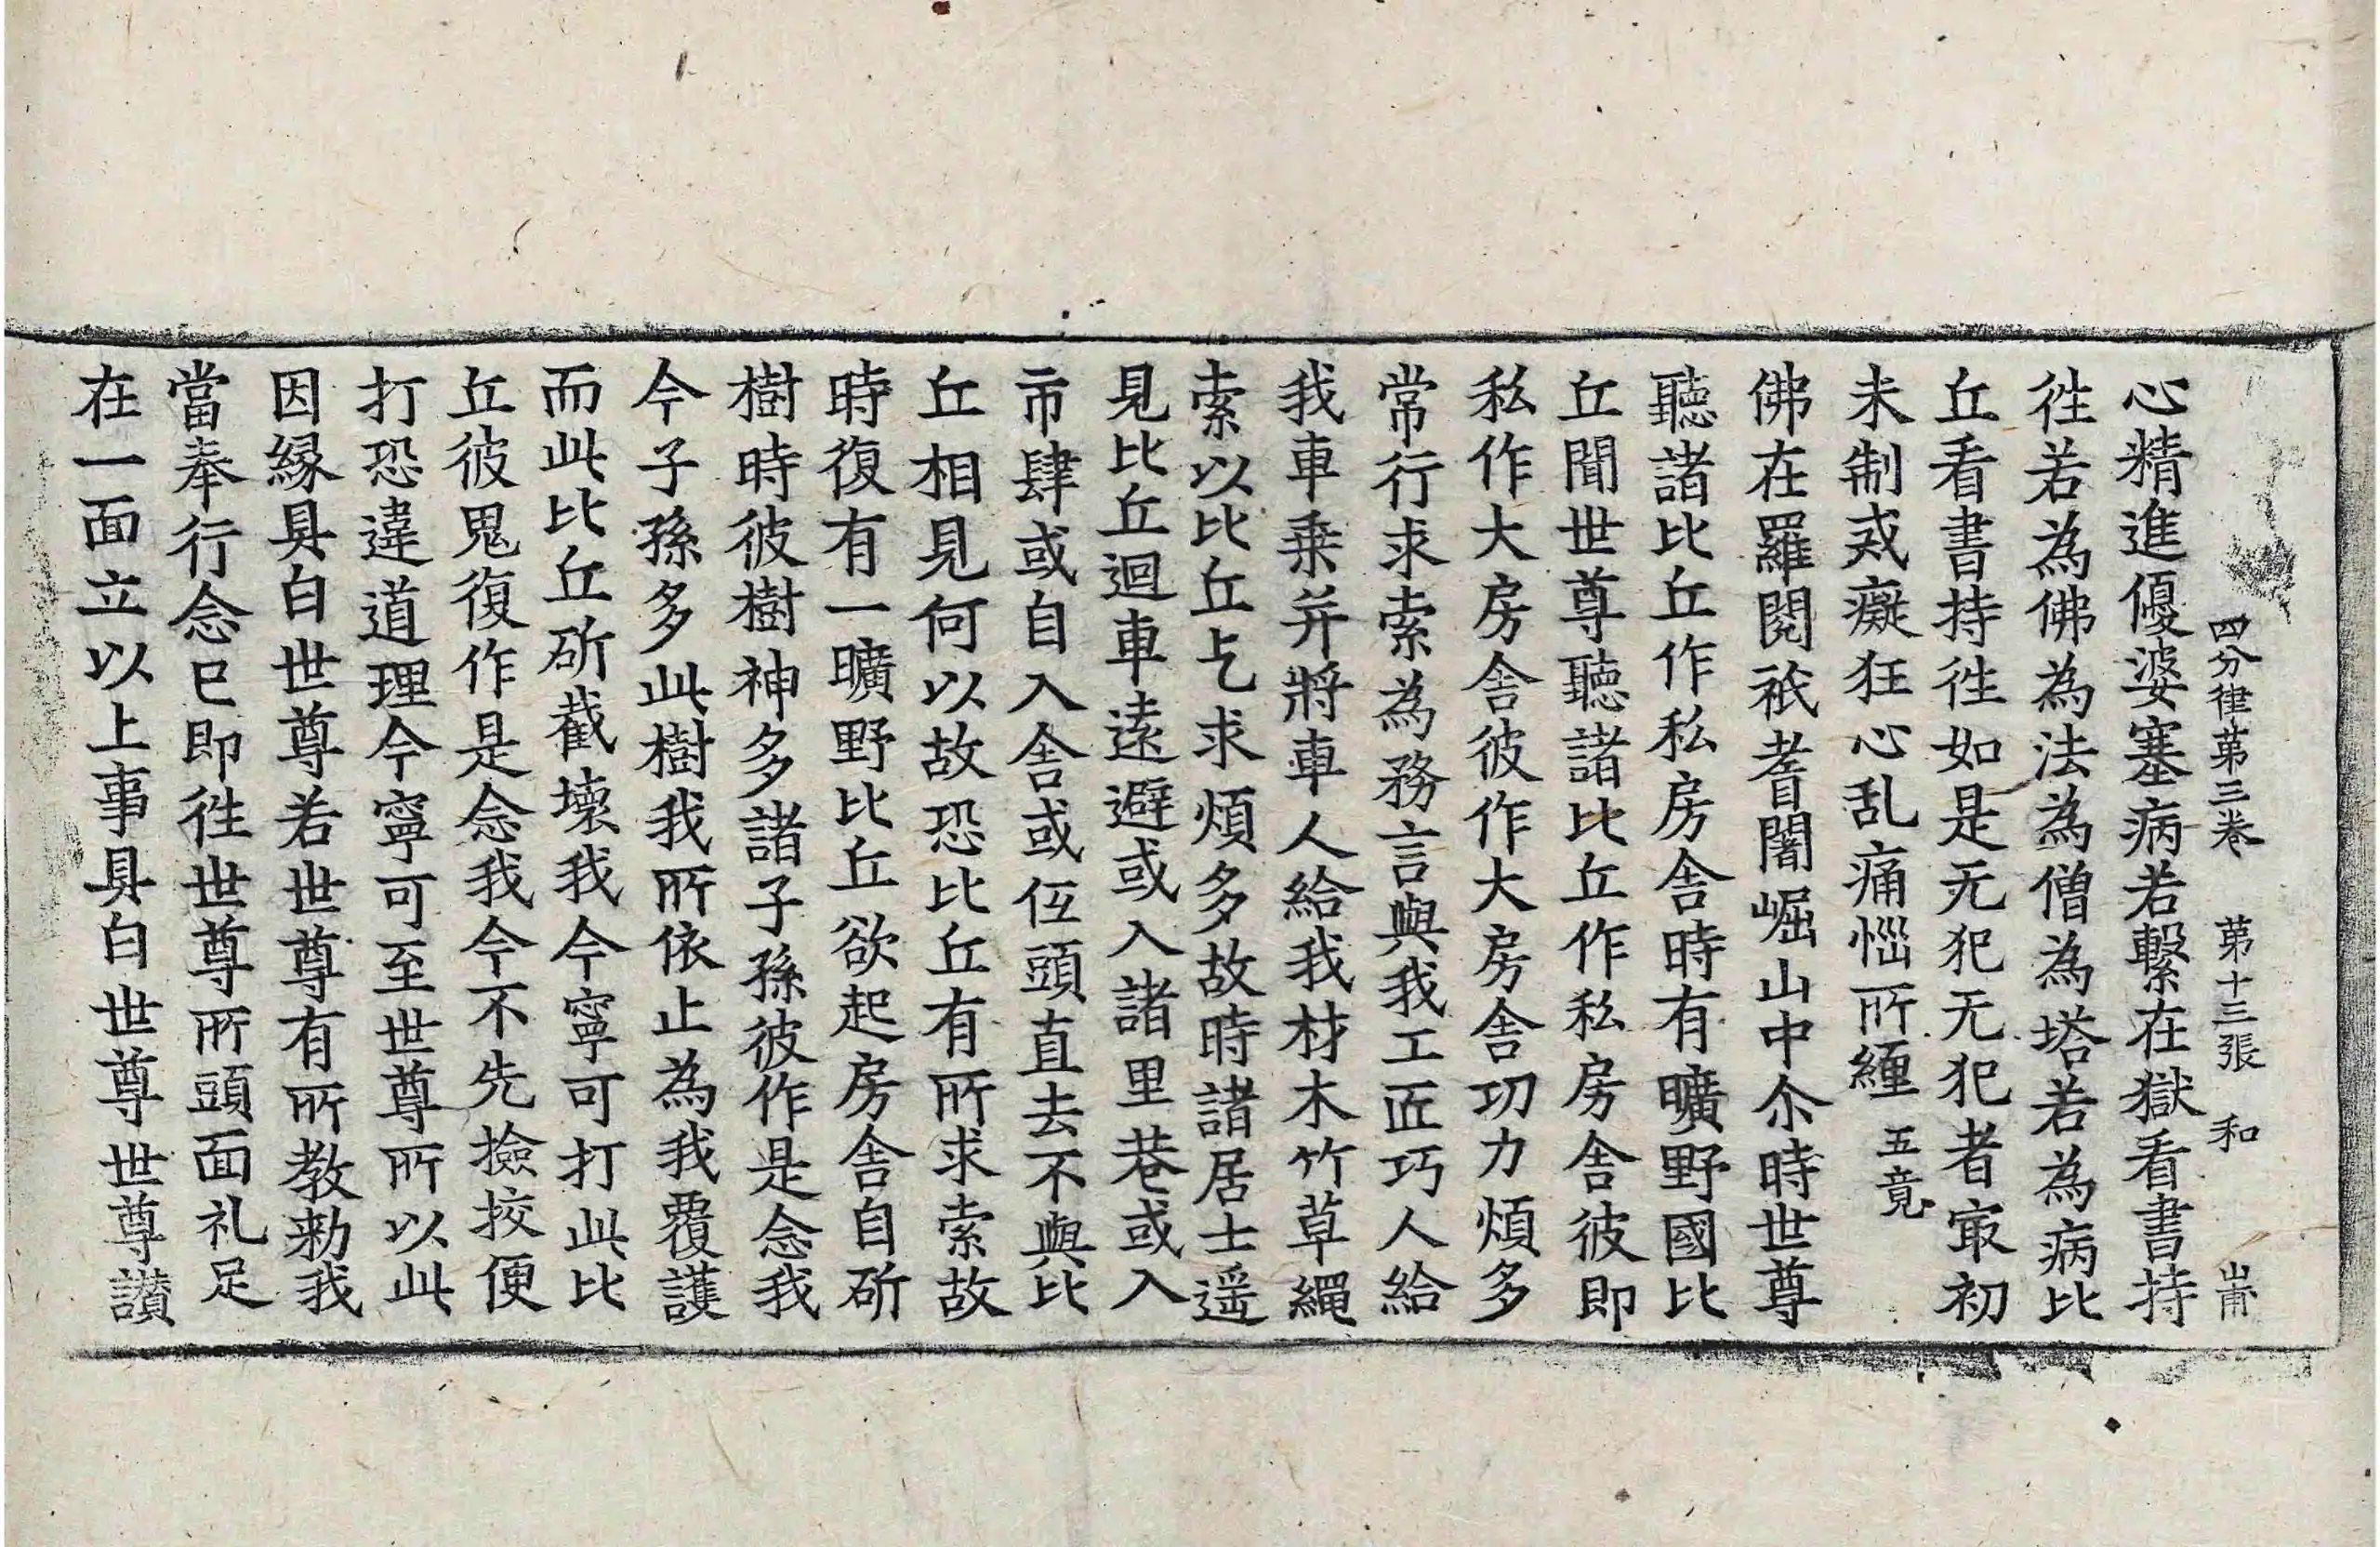 四分律第三卷　第十三張　和
心精進優婆塞病若繫在獄看書持
徃若為佛為法為僧為塔若為病比
丘看書持徃如是无犯无犯者㝡初
未制戒癡狂心乱痛惱所纏五竟
佛在羅閱祇耆闍崛山中尒時世尊
聽諸比丘作私房舍時有曠野國比
丘聞世尊聽諸比丘作私房舍彼即
私作大房舍彼作大房舍功力煩多
常行求索為務言與我工匠巧人給
我車乗并將車人給我材木竹草繩
索以比丘乞求煩多故時諸居士遥
見比丘迴車遠避或入諸里巷或入
市肆或自入舍或低頭直去不與比
丘相見何以故恐比丘有所求索故
時復有一曠野比丘欲起房舍自斫
樹時彼樹神多諸子孫彼作是念我
今子孫多此樹我所依止為我覆護
而此比丘斫截壞我今寧可打此比
丘彼鬼復作是念我今不先撿挍便
打恐違道理今寧可至世尊所以此
因緣具白世尊若世尊有所教勑我
當奉行念已即徃世尊所頭面礼足
在一面立以上事具白世尊世尊讃